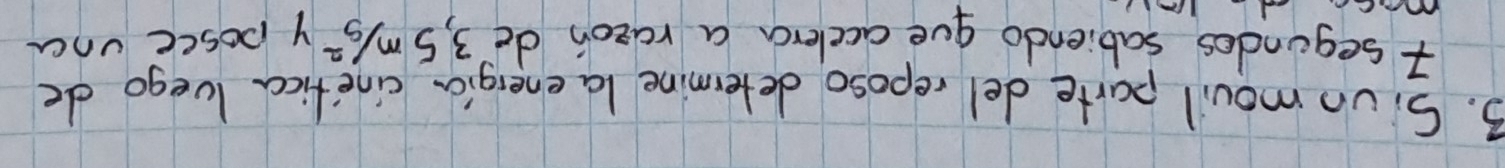 3. Si un movil parte del reposo determine la energía cinética luego de
7 segundos sabiendo que acelera a razón de 3,5 m/s² y posee una
masa de